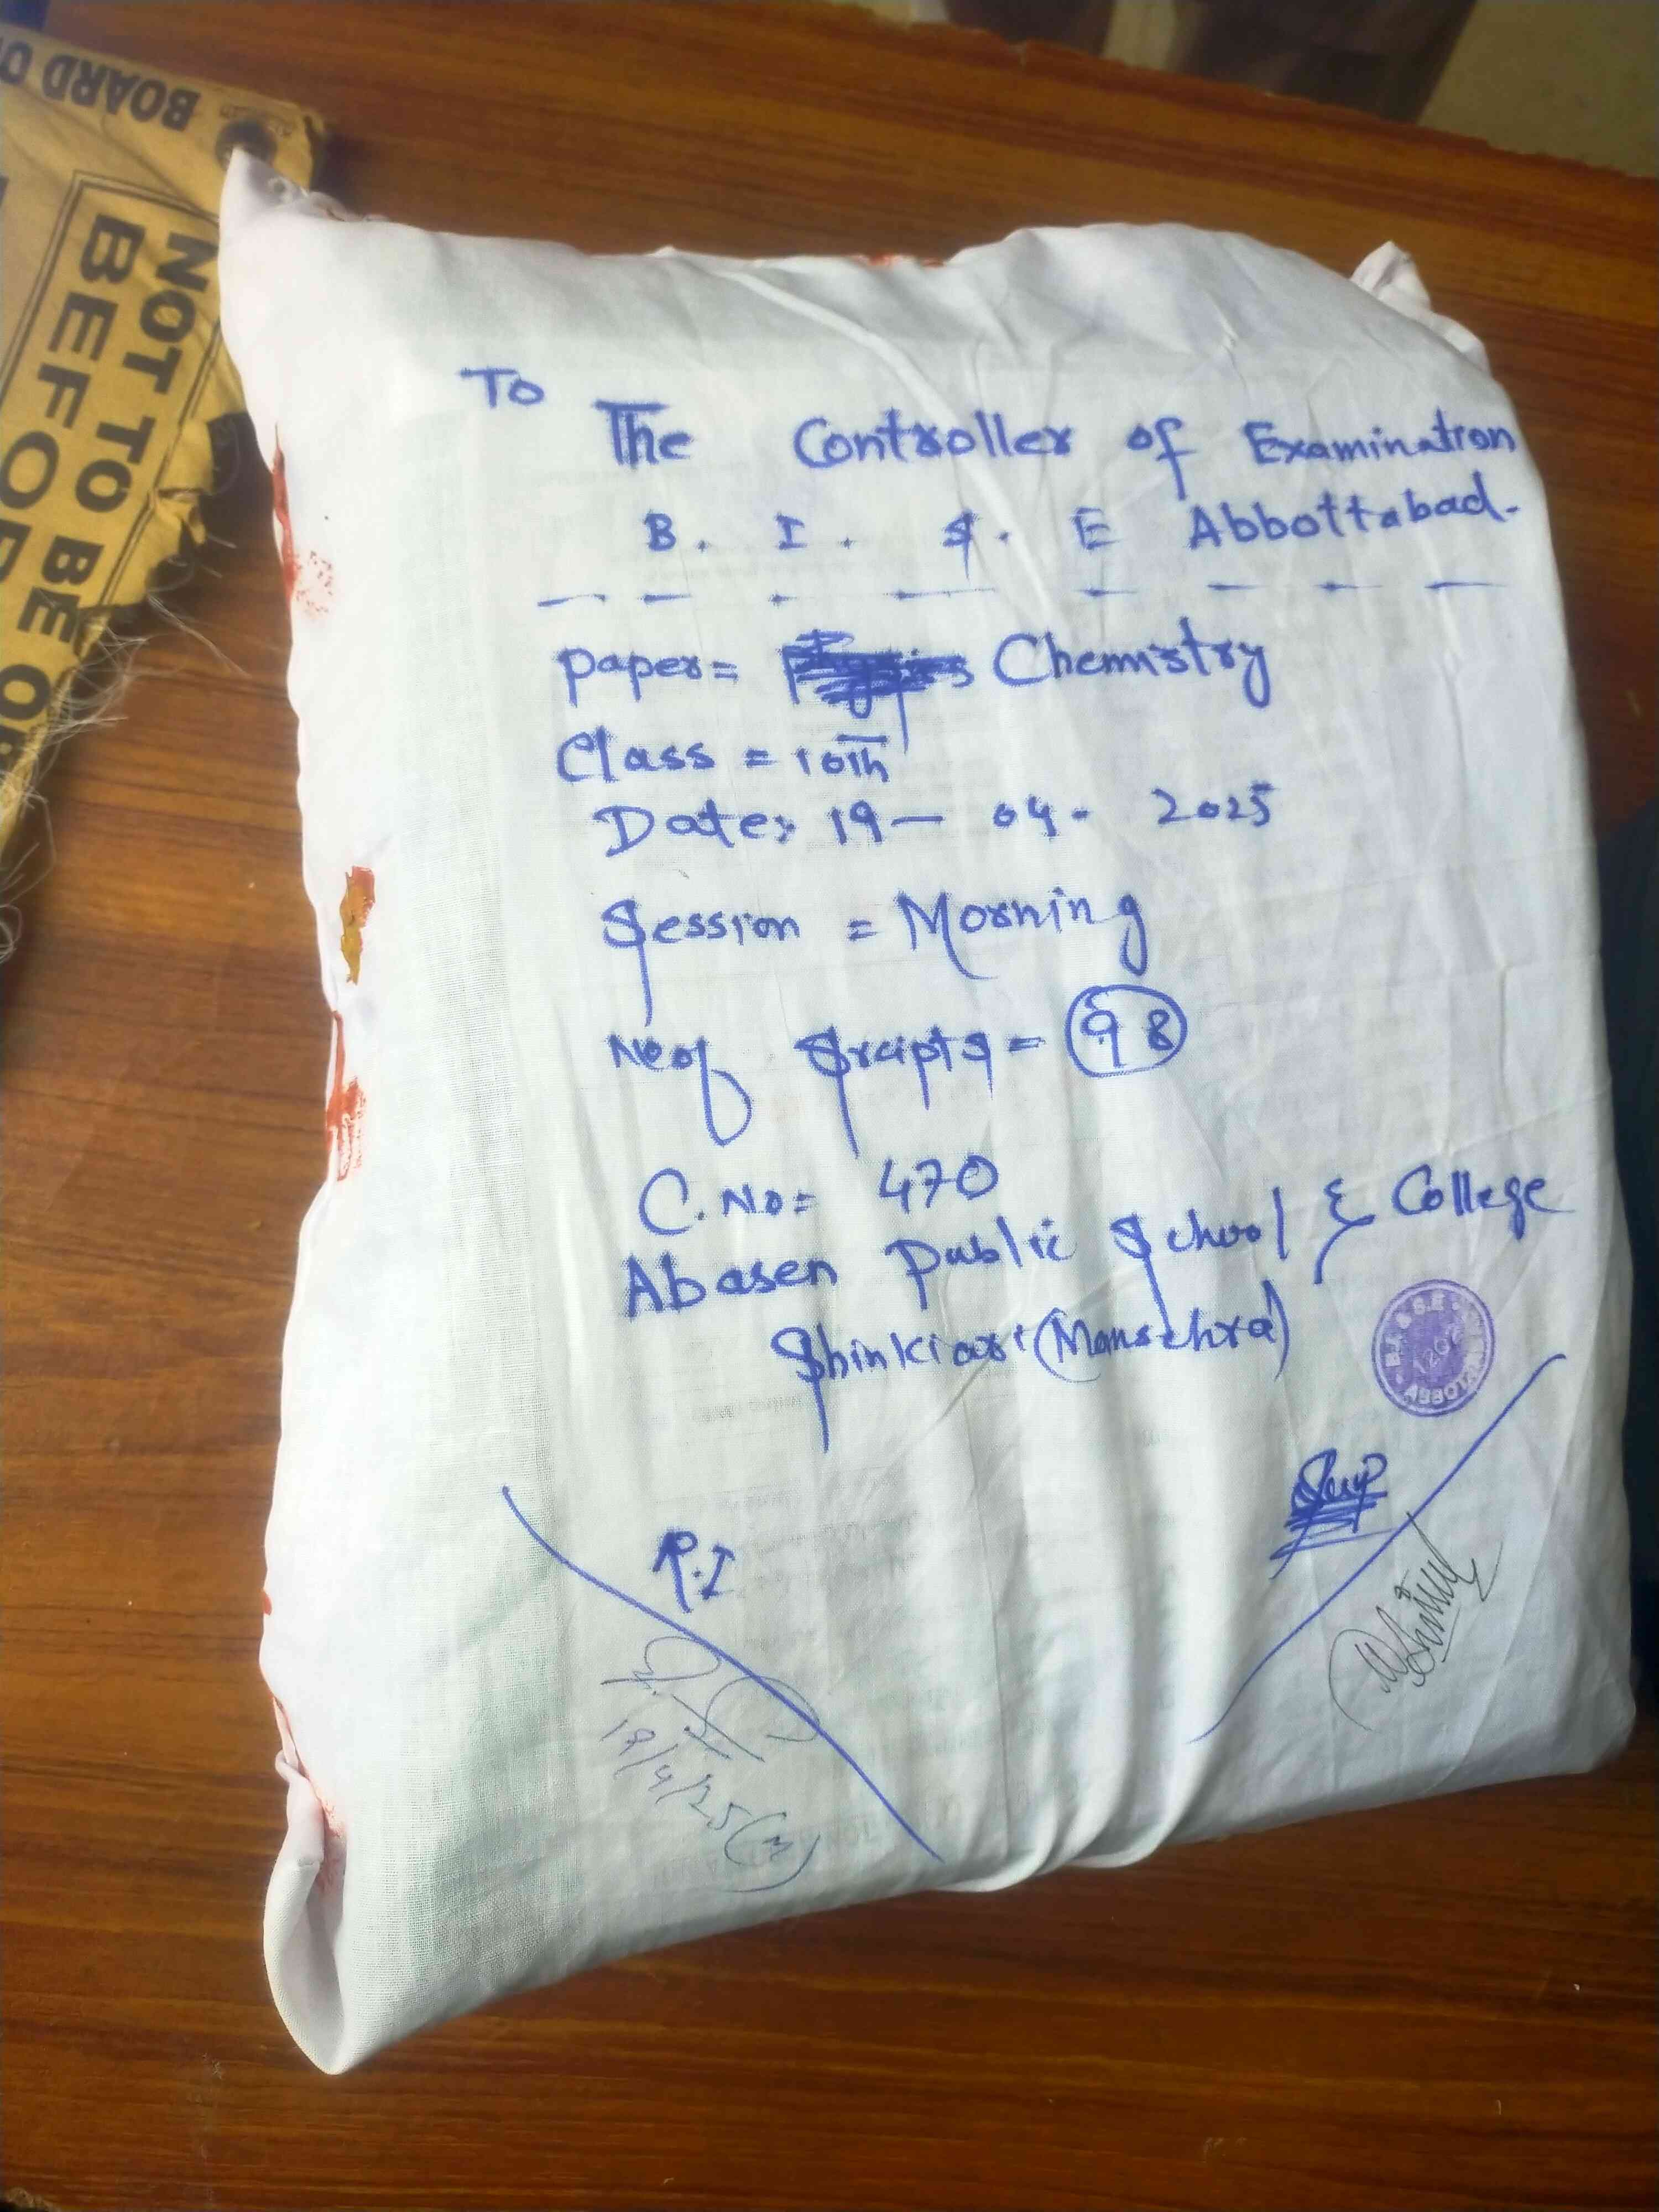 To
The Controller of Examination
B. I. S. E Abbottabad.
Paper= Chemistry
Class = 10th
Date: 19- 04- 2025
Session = Morning
No of Srcipts = 98
C. No= 470
Abasen Public School & College
Shinkiari (Mansehra)
R.I
Sup
19/4/25 (M)
B.I. & S.E
ABBOTTA
BOARD O
NOT TO BE OP
BEFOR